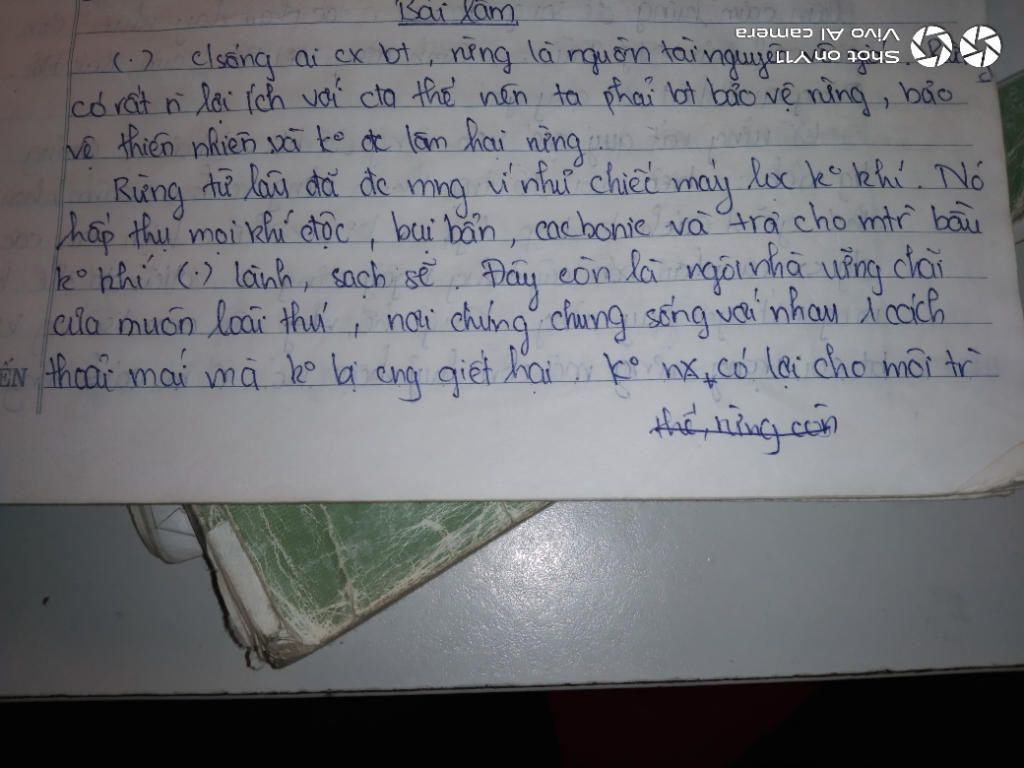 Bài làm
(.) c/sống ai cx bt, rừng là nguồn tài nguyên
có rất n lợi ích với cta thế nên ta phải bt bảo vệ rừng, bảo
vệ thiên nhiên và k° đc làm hại rừng
Rừng từ lâu đã đc mng ví như chiếc máy lọc k° khí. Nó
hấp thụ mọi khí độc, bụi bẩn, cacbonic và trả cho mtr bầu
k° khí (.) lành, sạch sẽ. Đây còn là ngôi nhà vững chãi
của muôn loài thú, nơi chúng chung sống với nhau 1 cách
thoải mái mà k° bị cng giết hại. k° nx, có lợi cho môi tr
thế, rừng còn
ẾN
Shot on Y11
Vivo AI camera